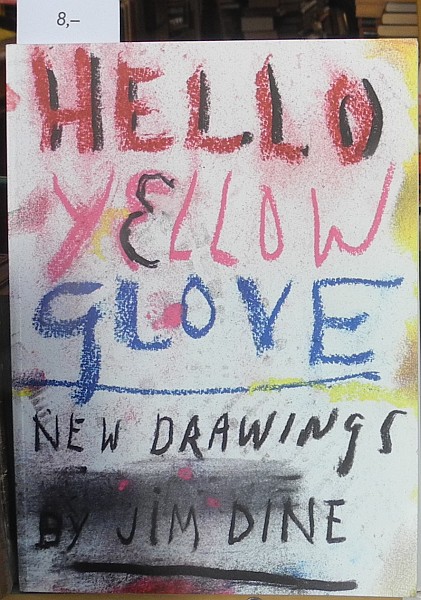 8,–
HELLO
YELLOW
GLOVE
NEW DRAWINGS
BY JIM DINE